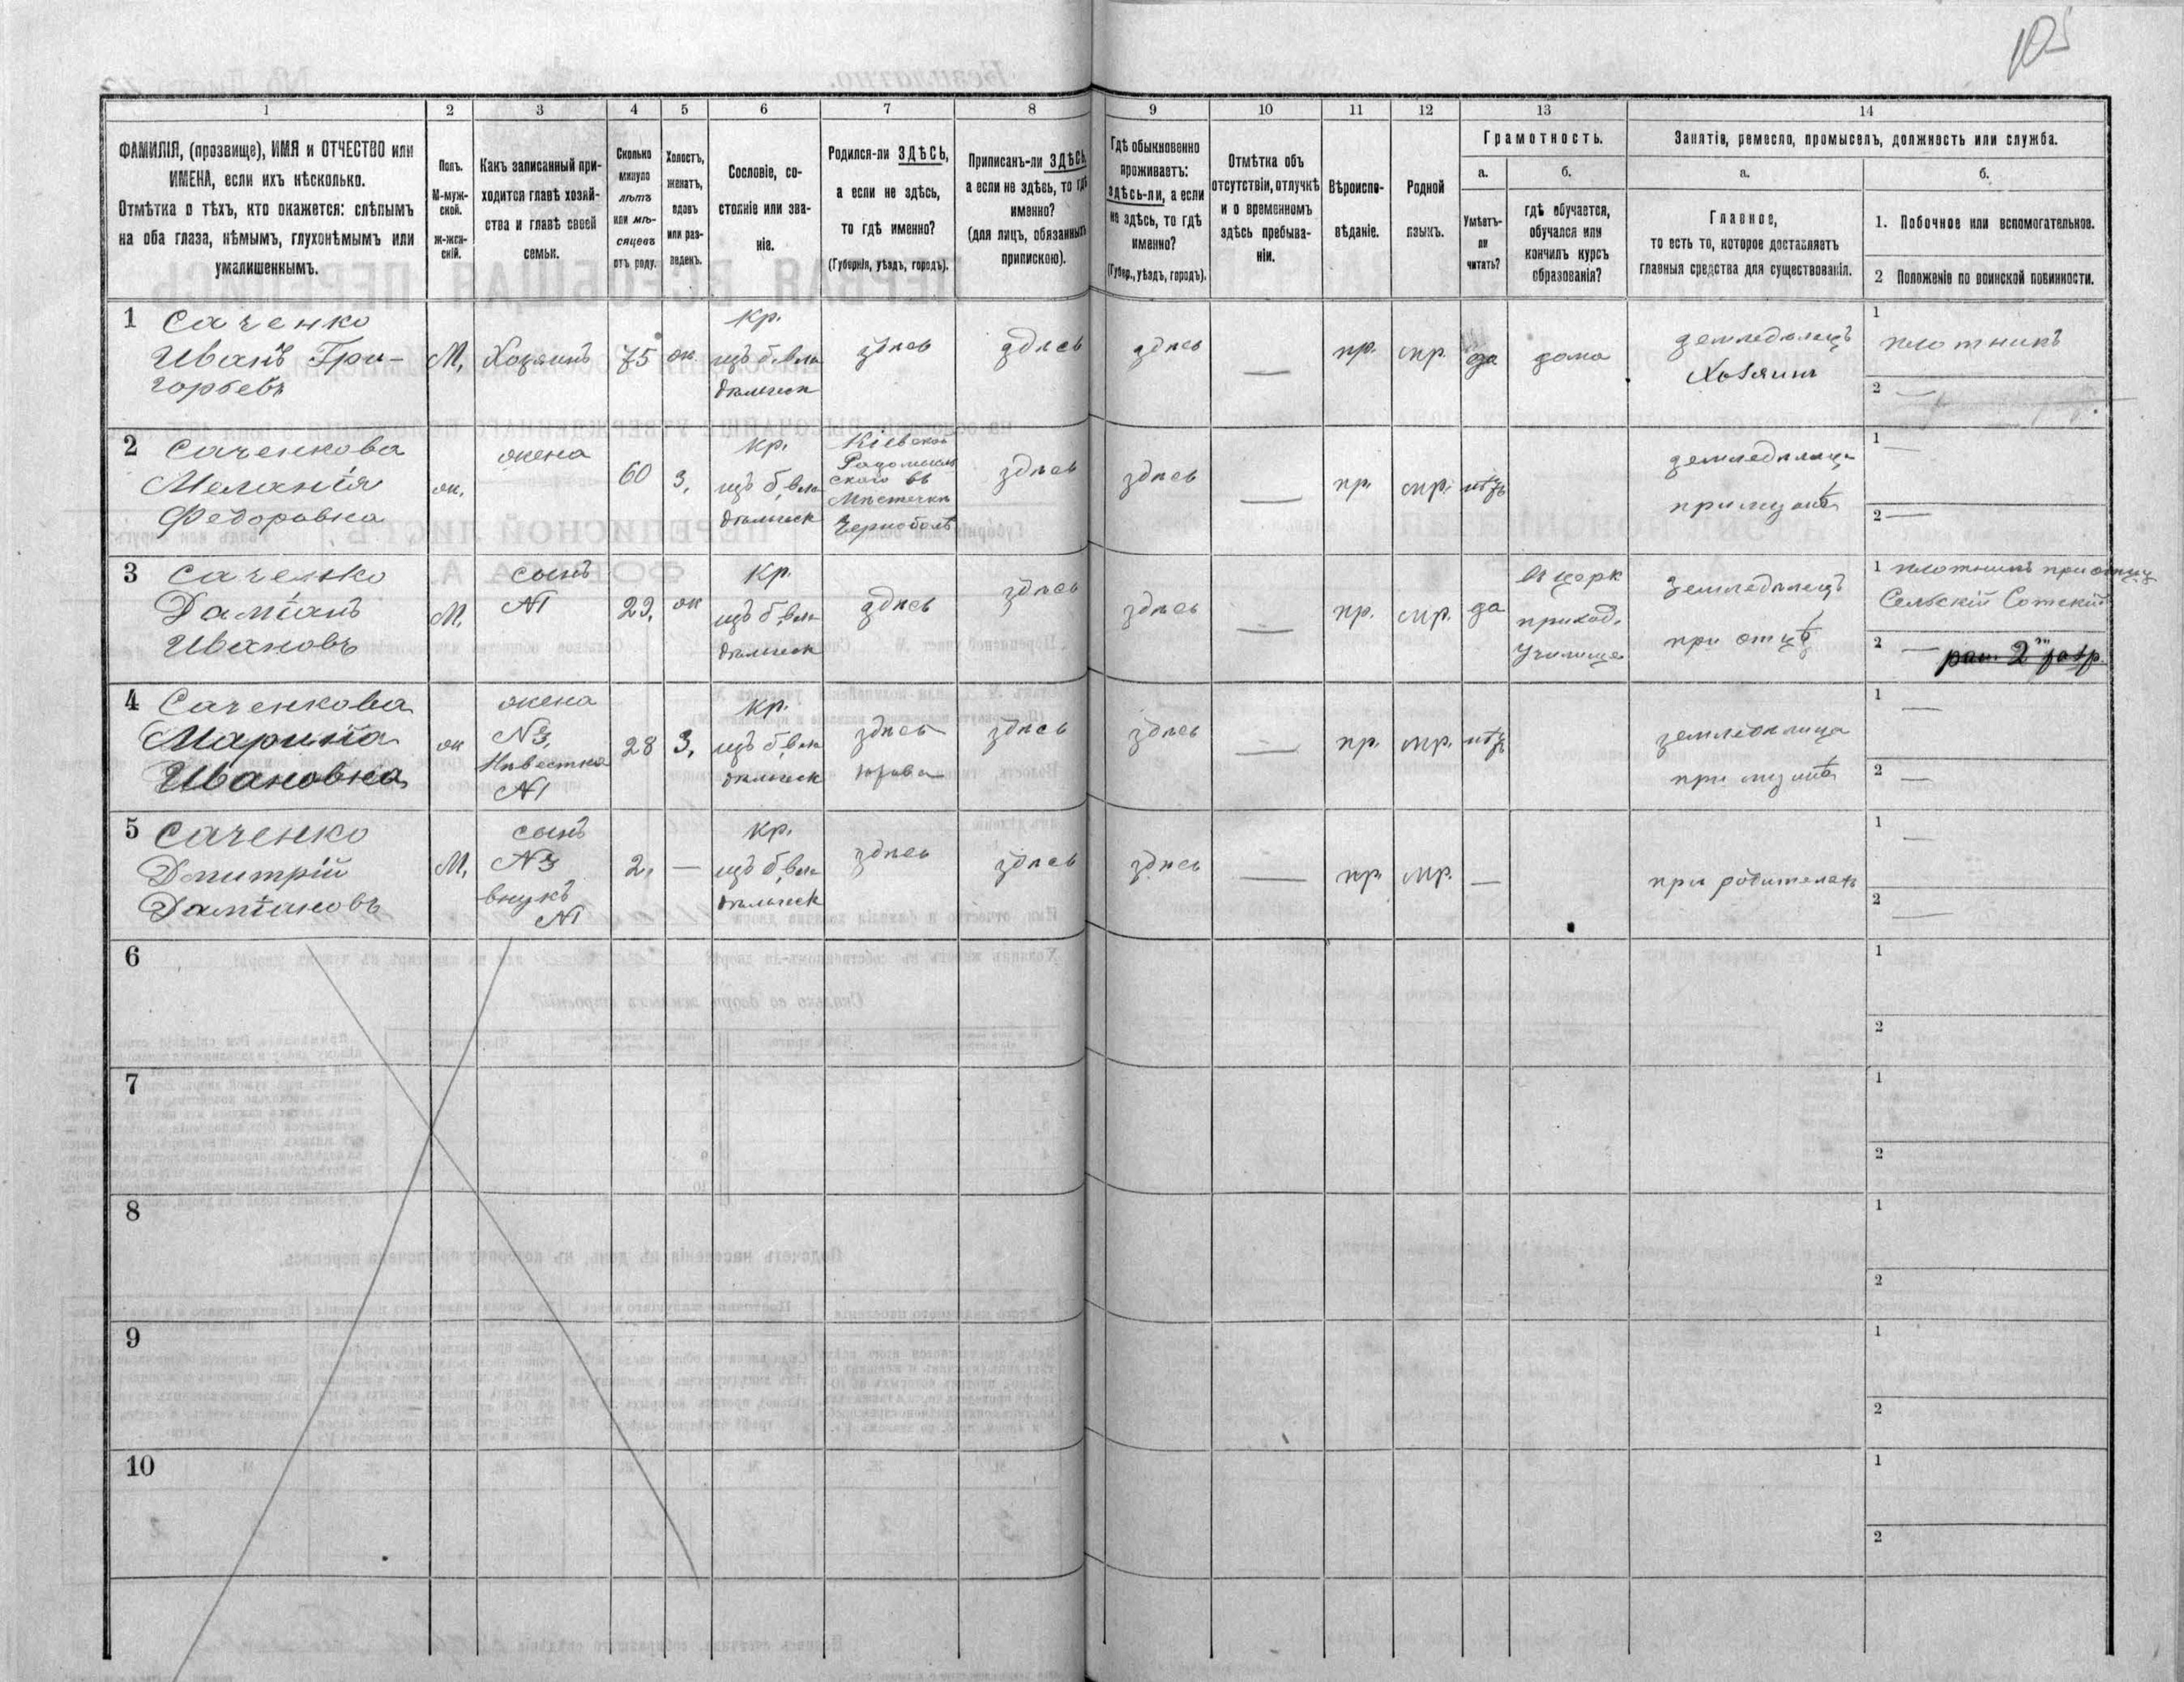 105
1
2
3
4
5
6
7
8
9
10
11
12
13
14
ФАМИЛІЯ, (прозвище), ИМЯ и ОТЧЕСТВО или
ИМЕНА, если ихъ нѣсколько.
Отмѣтка о тѣхъ, кто окажется: слѣпымъ
на оба глаза, нѣмымъ, глухонѣмымъ или
умалишеннымъ.
Полъ.
М-муж-
ской.
ж-жен-
скій.
Какъ записанный при-
ходится главѣ хозяй-
ства и главѣ своей
семьи.
Сколько
минуло
лѣтъ
или мѣ-
сяцевъ
отъ роду.
Холостъ,
женатъ,
вдовъ
или раз-
веденъ.
Сословіе, со-
стояніе или зва-
ніе.
Родился-ли ЗДѢСЬ,
а если не здѣсь,
то гдѣ именно?
(Губернія, уѣздъ, городъ).
Приписанъ-ли ЗДѢСЬ,
а если не здѣсь, то гдѣ
именно?
(для лицъ, обязанныхъ
припискою).
Гдѣ обыкновенно
проживаетъ:
здѣсь-ли, а если
не здѣсь, то гдѣ
именно?
(Губер., уѣздъ, городъ).
Отмѣтка объ
отсутствіи, отлучкѣ
и о временномъ
здѣсь пребыва-
ніи.
Вѣроиспо-
вѣданіе.
Родной
языкъ.
Грамотность.
а.
б.
Умѣетъ-
ли
читать?
гдѣ обучается,
обучался или
кончилъ курсъ
образованія?
Занятія, ремесло, промыселъ, должность или служба.
а.
б.
Главное,
то есть то, которое доставляетъ
главныя средства для существованія.
1. Побочное или вспомогательное.
2 Положеніе по воинской повинности.
1 Саченко
Иванъ Гри-
горьевъ
М,
Хозяинъ
75
ж.
кр.
изъ б, вла
дѣльческ
здѣсь
здѣсь
здѣсь
—
пр.
мр.
да
дома
земледѣлецъ
Хозяинъ
1
плотникъ
2 —
2 Саченкова
Меланія
Федоровна
ж.
жена
60
з,
кр.
изъ б, вла
дѣльческ
Кіевской
Радомысль
скаго въ
Мѣстечкѣ
Чернобылѣ
здѣсь
здѣсь
—
пр.
мр.
нѣтъ
земледѣлица
при мужѣ
1 —
2 —
3 Саченко
Даміанъ
Ивановъ
М,
сынъ
№1
29,
ж
кр.
изъ б, вла
дѣльческ
здѣсь
здѣсь
здѣсь
—
пр.
мр.
да
въ церк
приход.
училище
земледѣлецъ
при отцѣ
1 плотникъ при отцѣ
Сельскій Сотскій
2 — рат. 2 разр.
4 Саченкова
Марина
Ивановна
ж
жена
№3,
Невестка
№1
28
з,
кр.
изъ б, вла
дѣльческ
здѣсь
здѣсь
здѣсь
—
пр.
мр.
нѣтъ
земледѣлица
при мужѣ
1 —
2 —
5 Саченко
Дмитрій
Даміановъ
М,
сынъ
№3
внукъ
№1
2,
—
кр.
изъ б, вла
дѣльческ
здѣсь
здѣсь
здѣсь
—
пр.
мр.
—
при родителяхъ
1 —
2 —
6
1
2
7
1
2
8
1
2
9
1
2
10
1
2